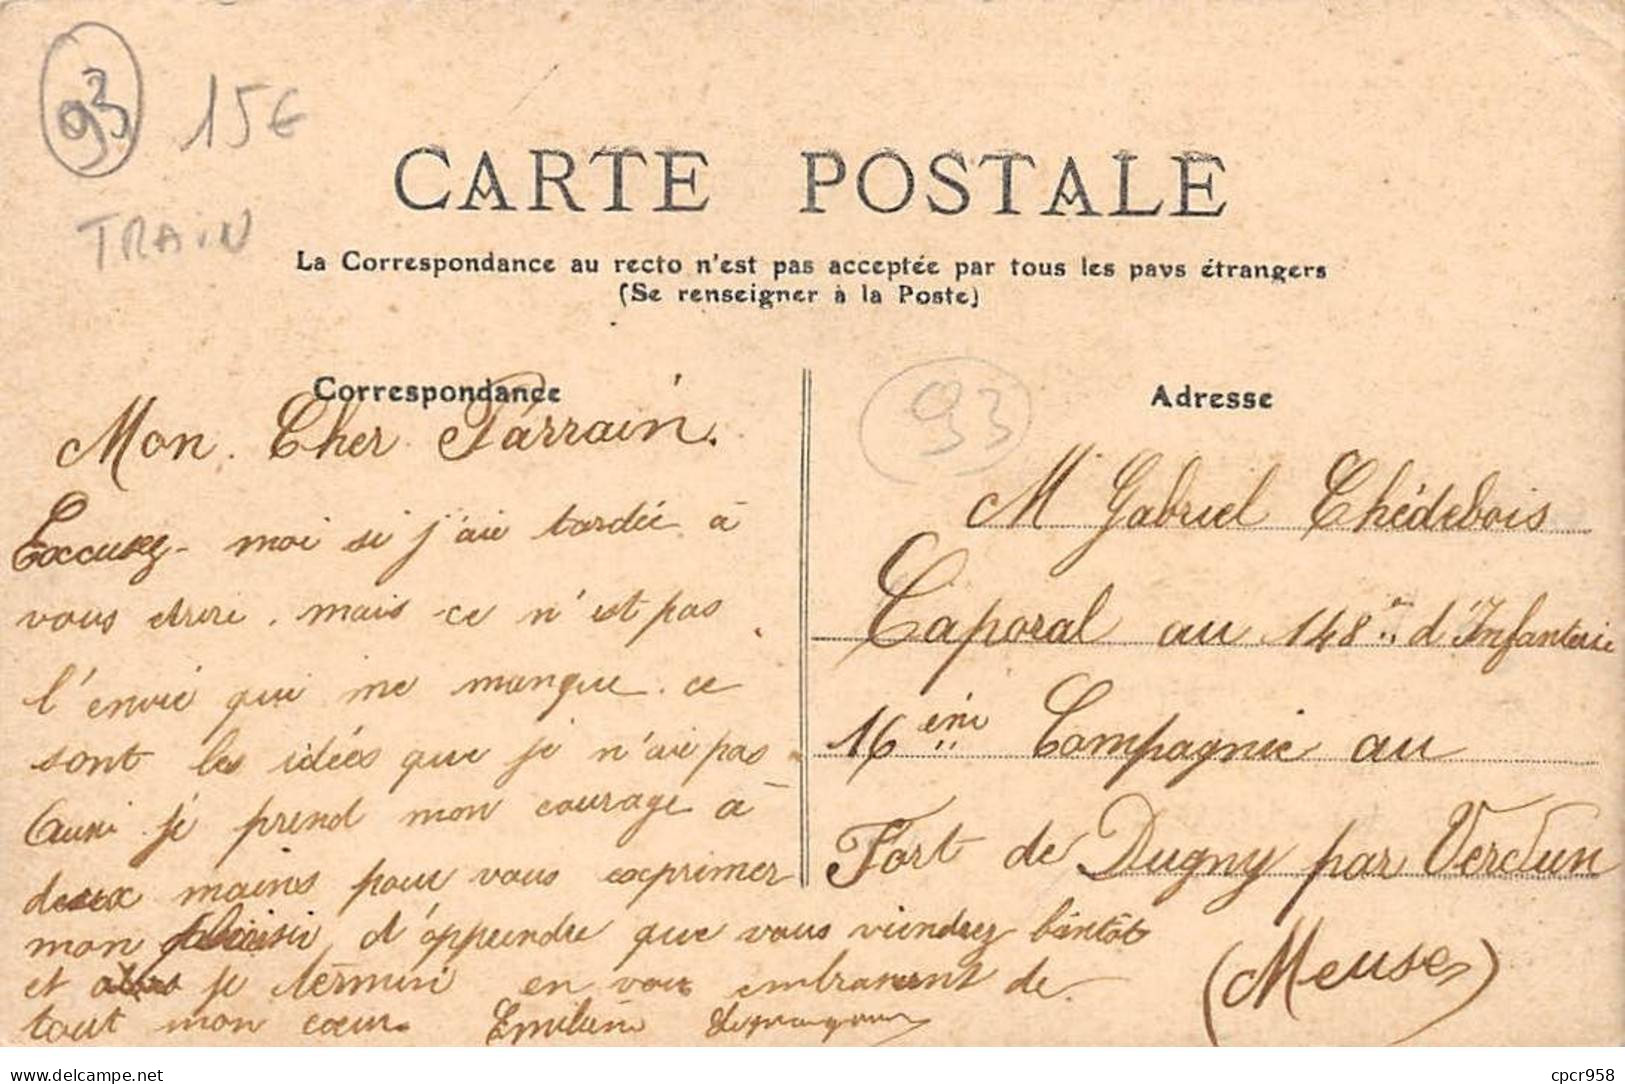 93
15€
TRAIN
CARTE POSTALE
La Correspondance au recto n'est pas acceptée par tous les pays étrangers
(Se renseigner à la Poste)
Correspondance
Mon. Cher Parrain.
Excusez-moi si j'aie tardée à
vous écrire. mais ce n'est pas
l'envie qui me manque. ce
sont les idées que je n'aie pas
Aussi je prend mon courage à
deux mains pour vous exprimer
mon plaisir d'apprendre que vous viendrez bientôt
et je termine en vous embrassent de
tout mon cœur. Emilien
93
Adresse
Mr Gabriel Chédebois
Caporal au 148e d'Infanterie
16ème Compagnie au
Fort de Dugny par Verdun
(Meuse)
www.delcampe.net
cpcr958